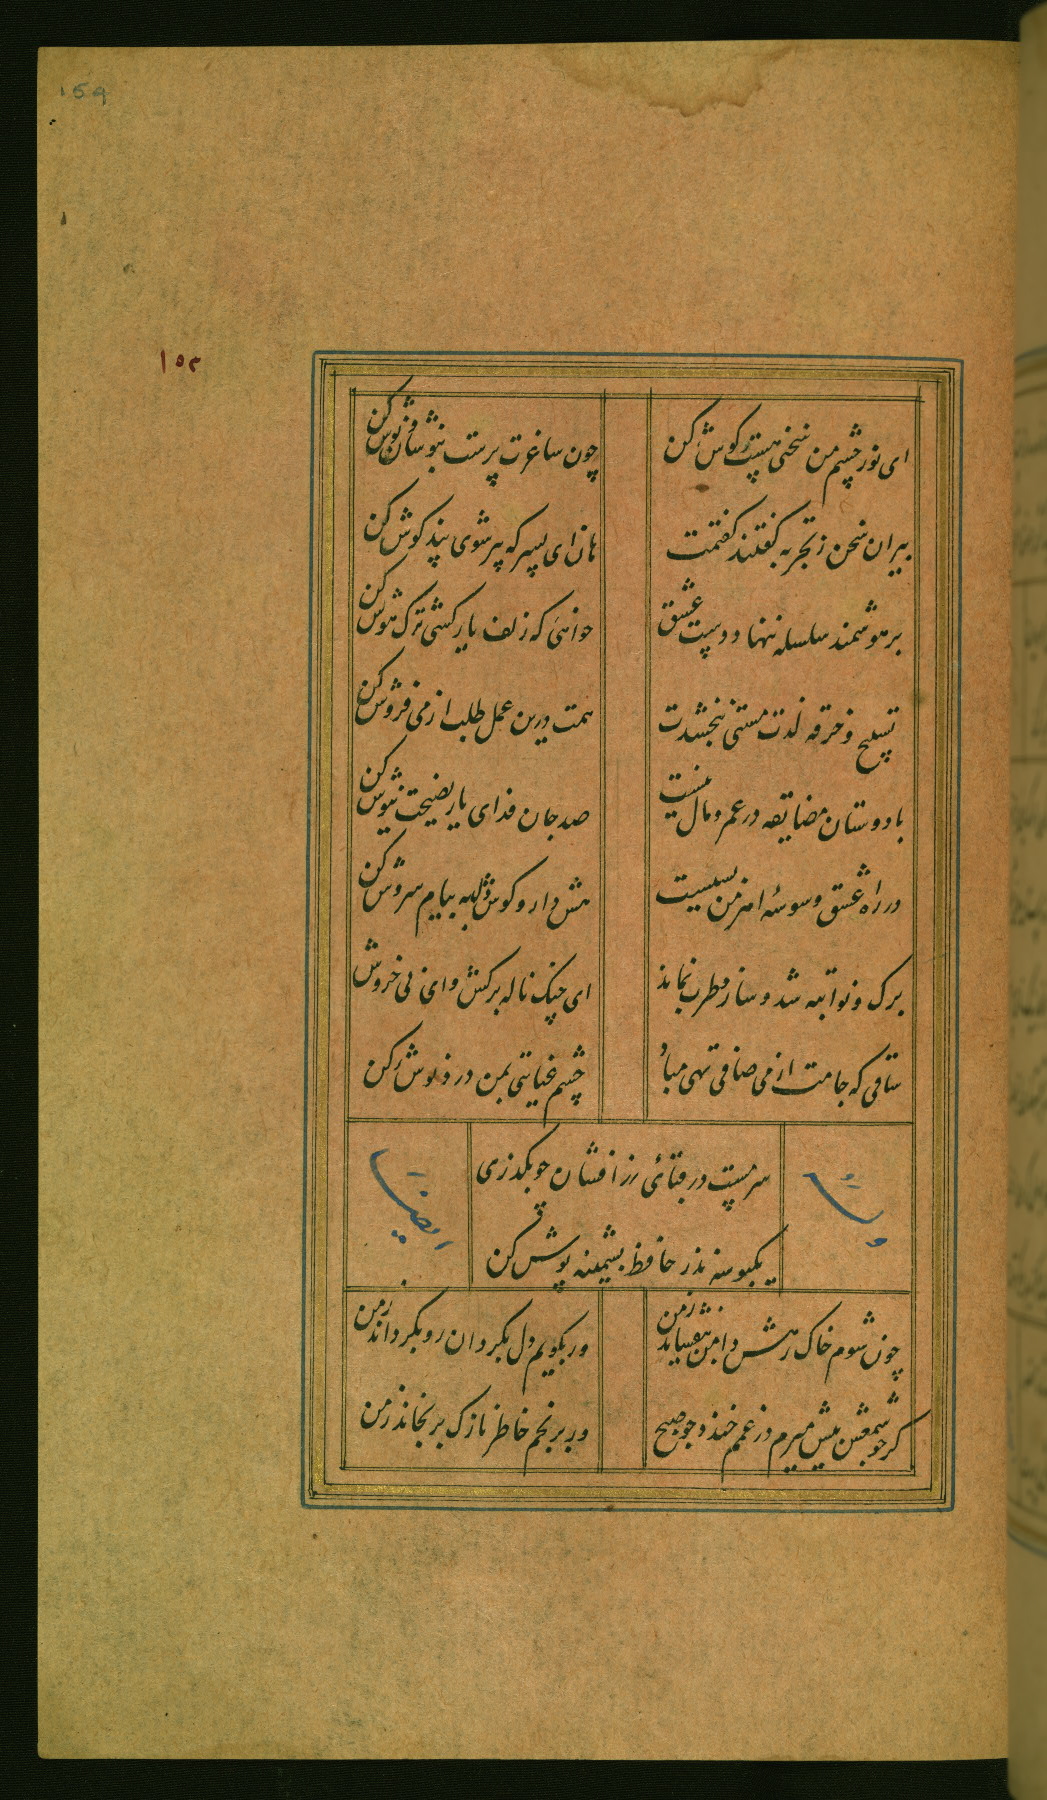 159
۱۵۳
ای نور چشم من سخنی هست گوش کن
چون ساغرت پرست بنوشان و نوش کن
پیران سخن ز تجربه گفتند گفتمت
هان ای پسر که پیر شوی پند گوش کن
بر هوشمند سلسله ننهاد دست عشق
خواهی که زلف یار کشی ترک هوش کن
تسبیح و خرقه لذت مستی نبخشدت
همت درین عمل طلب از می فروش کن
با دوستان مضایقه در عمر و مال نیست
صد جان فدای یار نصیحت نیوش کن
در راه عشق وسوسهٔ اهرمن بسیست
هش دار و گوش دل به پیام سروش کن
برک و نوا تبه شد و ساز و طرب نماند
ای چنگ ناله برکش و ای نی خروش
ساقی که جامت از می صافی تهی مباد
چشم عنایتی بمن درد نوش کن
سرمست در قبای زر افشان چو بگذری
یک بوسه نذر حافظ پشمینه پوش کن
وله
ایضا
چون شوم خاک رهش دامن بیفشاند ز من
ور بگویم دل بگردان رو بگرداند ز من
گر چو شمعش پیش میرم در غمم خندد چو صبح
ور برنجم خاطر نازک برنجاند ز من